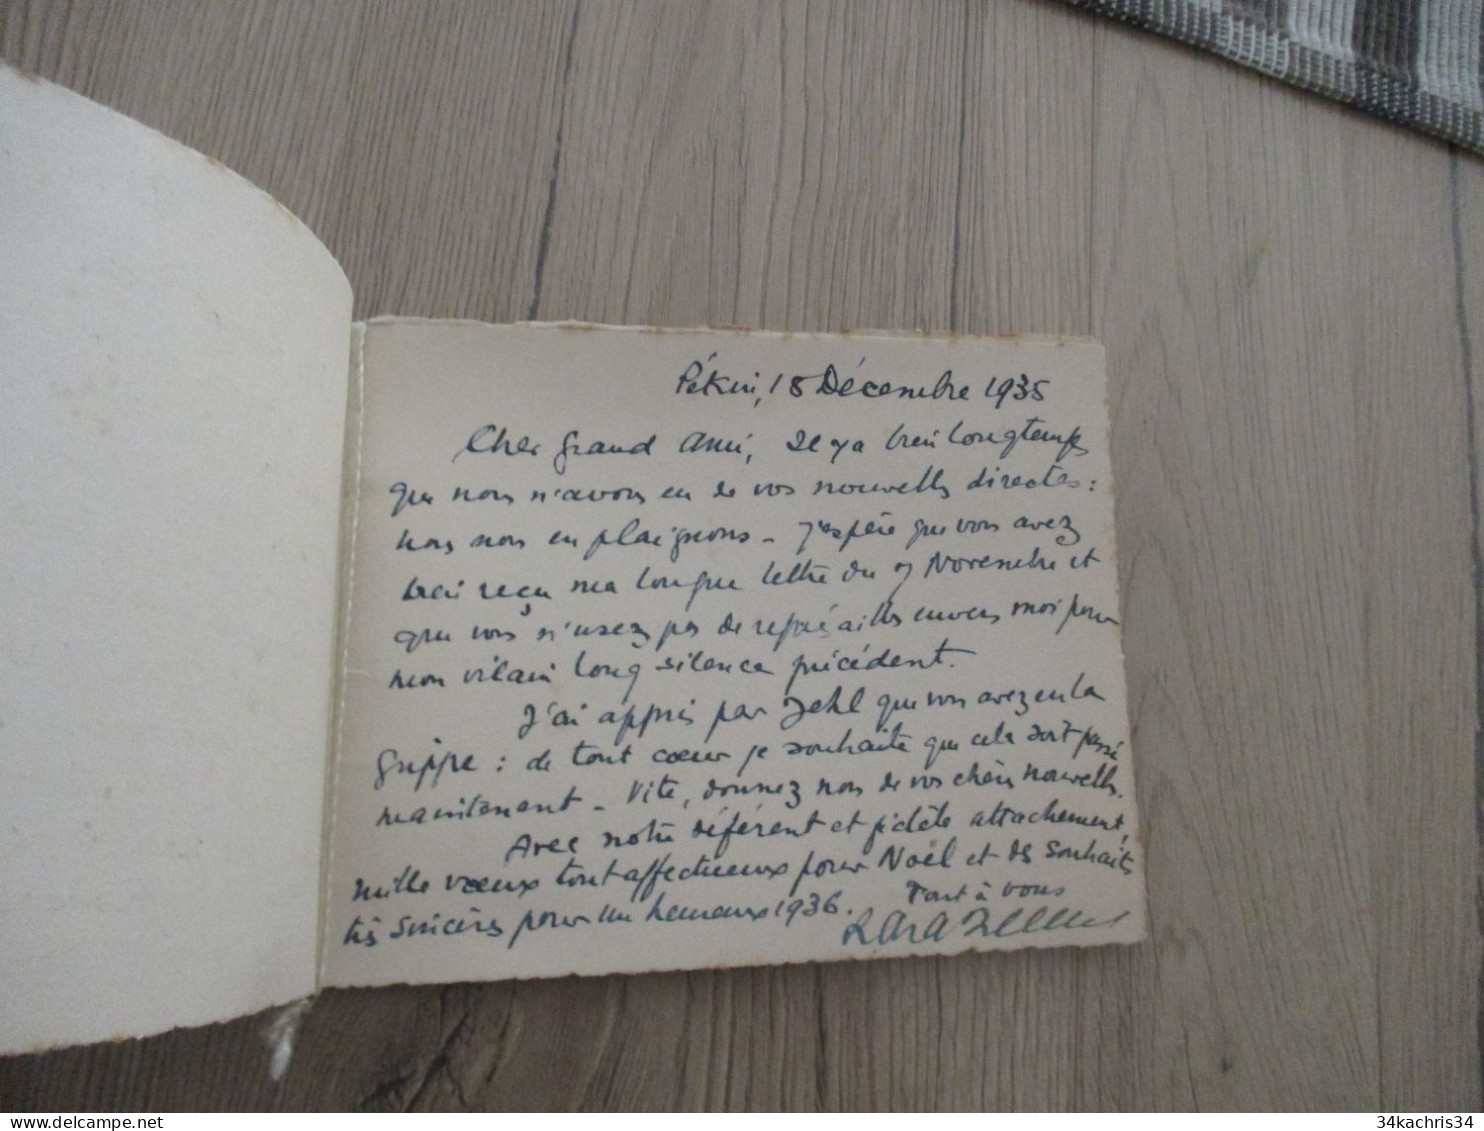 Pékin, 18 Décembre 1935
Cher grand ami, Il y a bien longtemps
que nous n'avons eu de vos nouvelles directes :
nous nous en plaignons - J'espère que vous avez
bien reçu ma longue lettre du 7 Novembre et
que vous n'usez pas de représailles envers moi pour
mon vilain long silence précédent.
J'ai appris par Jehl que vous avez eu la
grippe : de tout cœur je souhaite que cela soit passé
maintenant - Vite, donnez nous de vos chères nouvelles.
Avec notre déférent et fidèle attachement,
mille vœux tout affectueux pour Noël et des souhaits
très sincères pour un heureux 1936. Tout à vous
34kachris34
delcampe.net